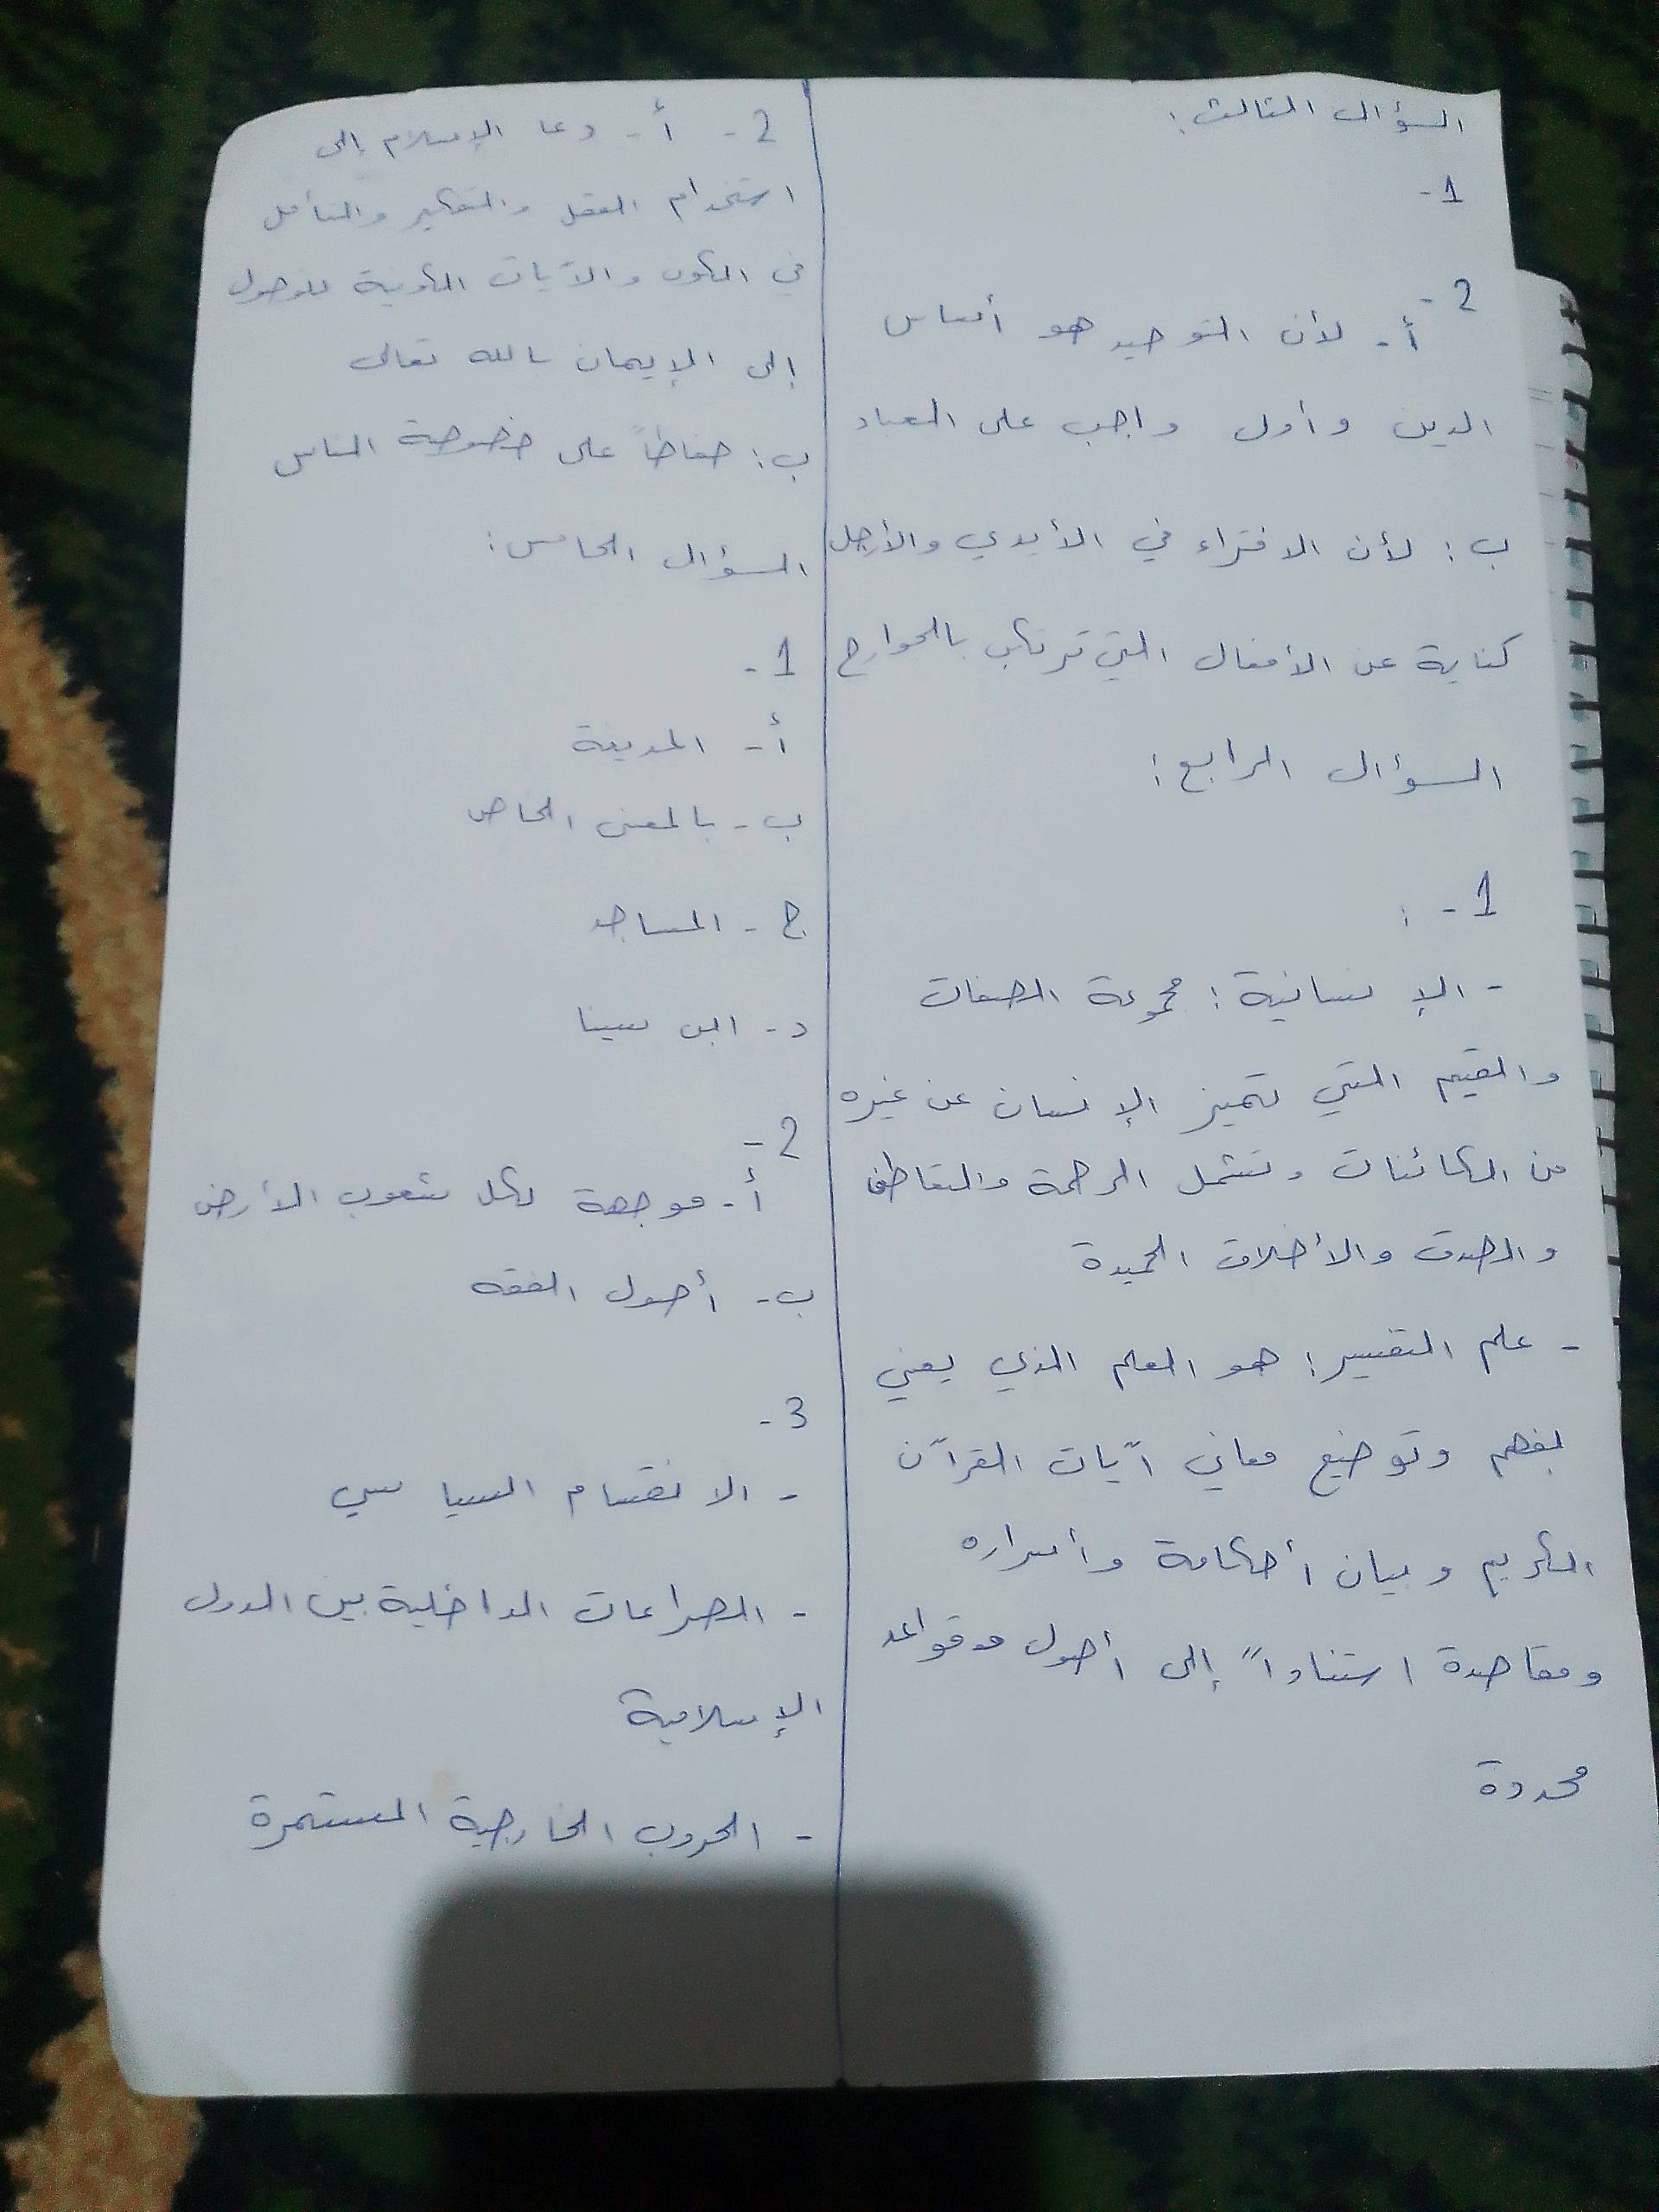 السؤال الثالث:
1-
2-
أ- لأن التوحيد هو أساس
الدين وأول واجب على العباد
ب: لأن الافتراء في الأيدي والأرجل
كناية عن الأفعال التي ترتكب بالجوارح
السؤال الرابع:
1- :
- الإنسانية: مجموعة الصفات
والقيم التي تميز الإنسان عن غيره
من الكائنات وتشمل الرحمة والتعاطف
والصدق والأخلاق الحميدة
- علم التفسير: هو العلم الذي يعني
بفهم وتوضيع معاني آيات القرآن
الكريم وبيان أحكامة وأسراره
ومقاصدة استناداً إلى أصول وقواعد
محددة
2- أ- دعا الإسلام إلى
استخدام العقل والتفكير والتأمل
في الكون والآيات الكونية للوصول
إلى الإيمان بالله تعالى
ب: حفاظاً على خصوصة الناس
السؤال الخامس:
1-
أ- المدينة
ب- بالمعنى الخاص
ج- المساجد
د- ابن سينا
2-
أ- موجهة لكل شعوب الأرض
ب- أصول الفقه
3-
- الانقسام السياسي
- الصراعات الداخلية بين الدول
الإسلامية
- الحروب الخارجية المستمرة